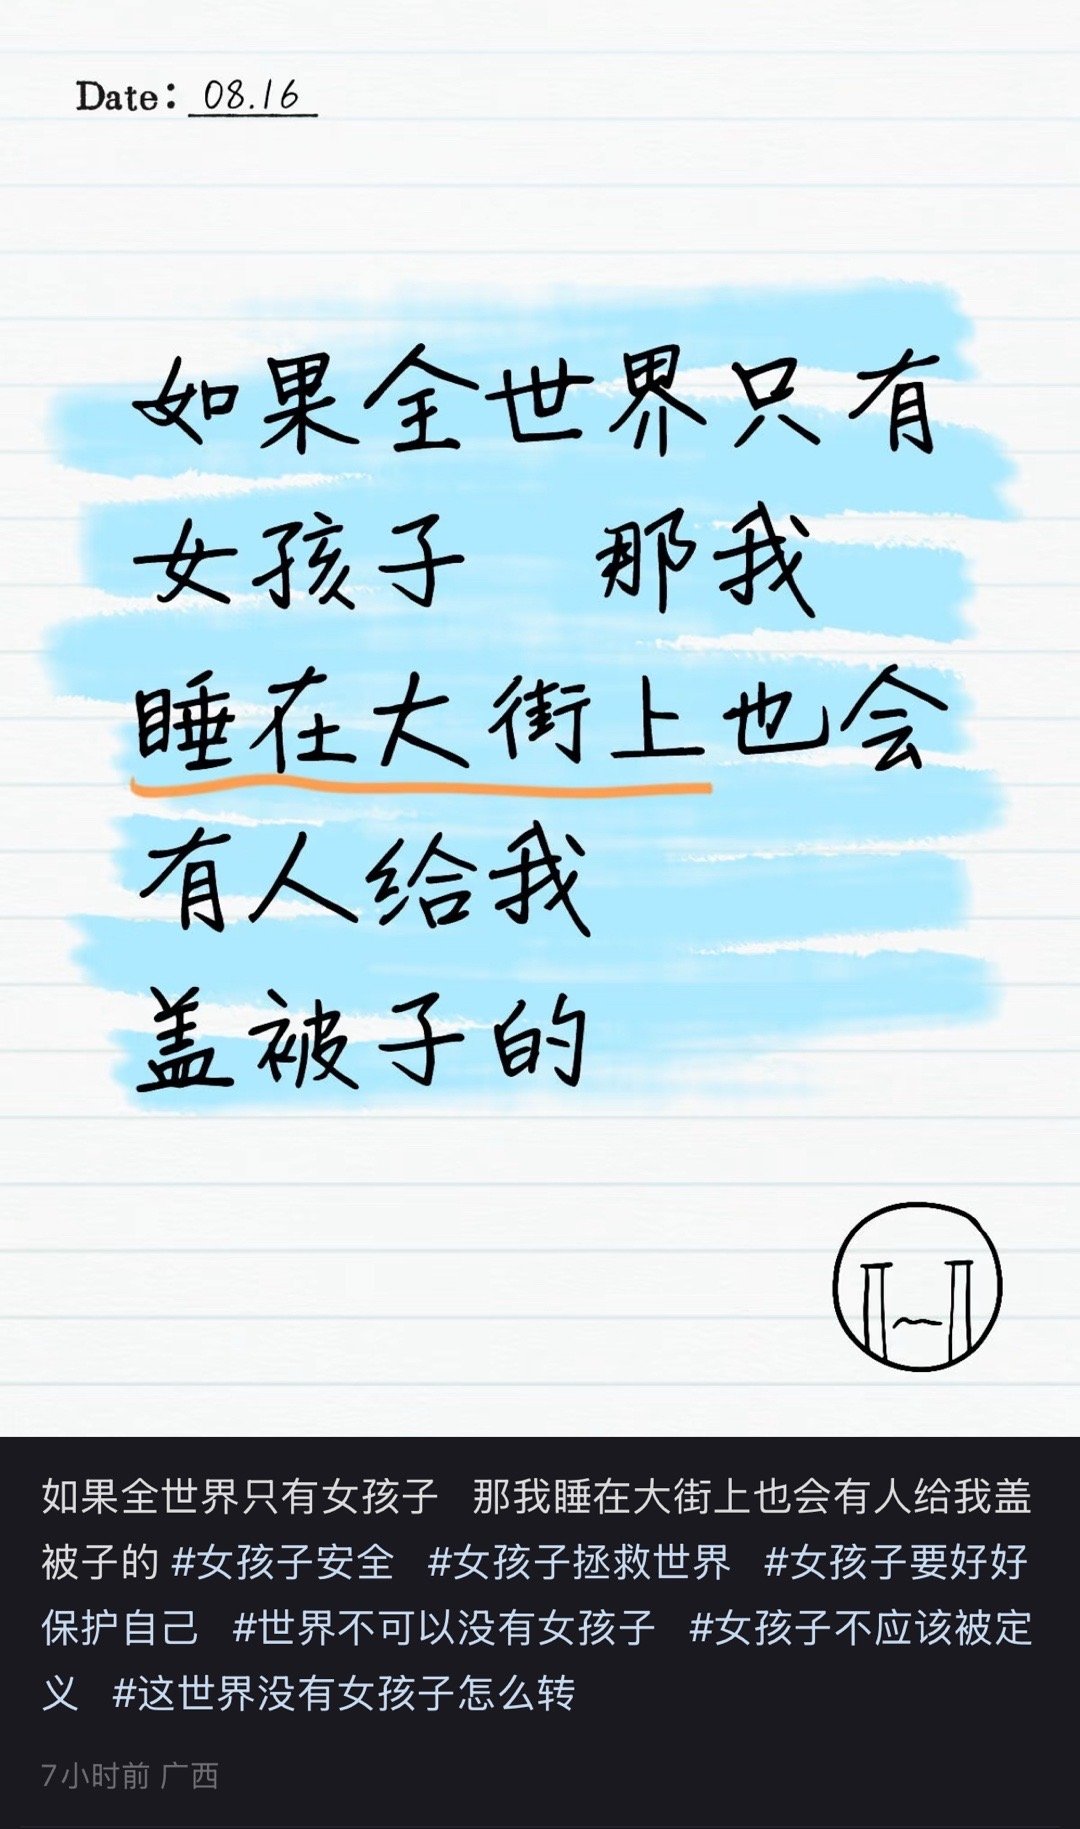 Date: 08.16
如果全世界只有
女孩子 那我
睡在大街上也会
有人给我
盖被子的
如果全世界只有女孩子 那我睡在大街上也会有人给我盖
被子的 #女孩子安全 #女孩子拯救世界 #女孩子要好好
保护自己 #世界不可以没有女孩子 #女孩子不应该被定
义 #这世界没有女孩子怎么转
7小时前 广西